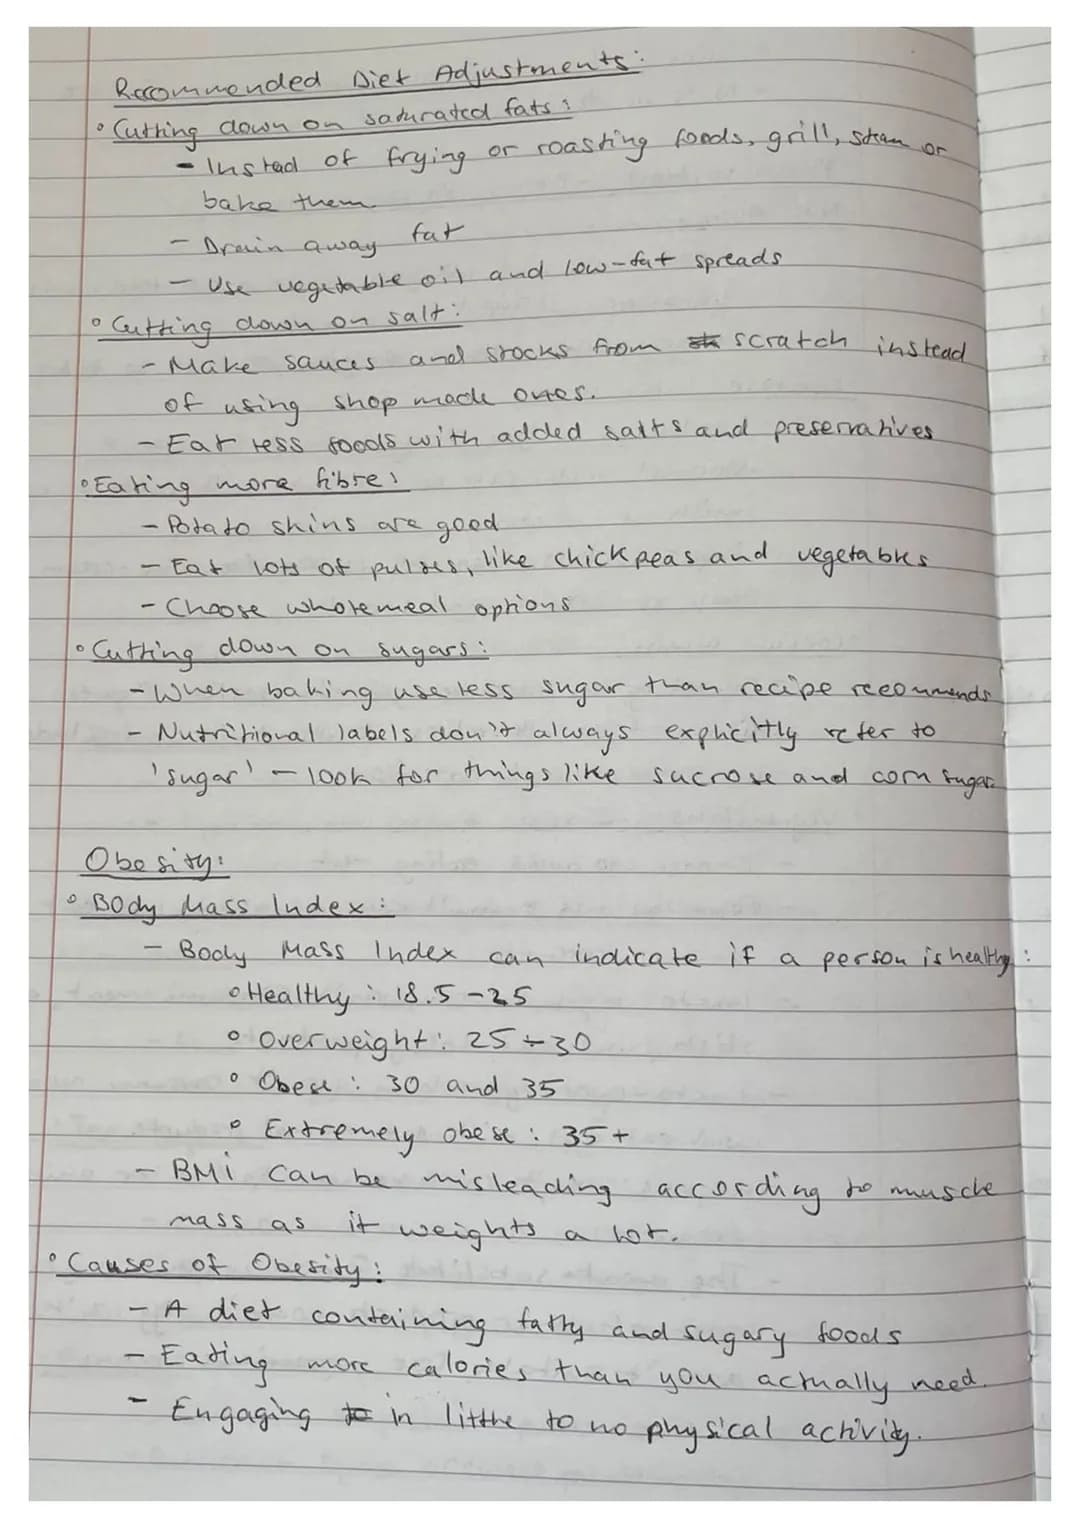 Recommended Diet Adjustments:
• Cutting down on saturated fats:
- Instead of frying or roasting foods, grill, steam or
bake them.
- Drain away fat
- Use vegetable oil and low-fat spreads
• Cutting down on salt:
- Make sauces and stocks from scratch instead
of using shop made ones.
- Eat less foods with added salts and preservatives
• Eating more fibre:
- Potato skins are good
- Eat lots of pulses, like chickpeas and vegetables
- Choose wholemeal options
• Cutting down on sugars:
- When baking use less sugar than recipe recommends
- Nutritional labels don't always explicitly refer to
'sugar' - look for things like sucrose and corn sugar.
Obesity:
• Body Mass Index:
- Body Mass Index can indicate if a person is healthy:
• Healthy: 18.5-25
• Overweight: 25-30
• Obese: 30 and 35
• Extremely obese: 35+
- BMI can be misleading according to muscle
mass as it weights a lot.
• Causes of Obesity:
- A diet containing fatty and sugary foods
- Eating more calories than you actually need.
- Engaging in little to no physical activity.